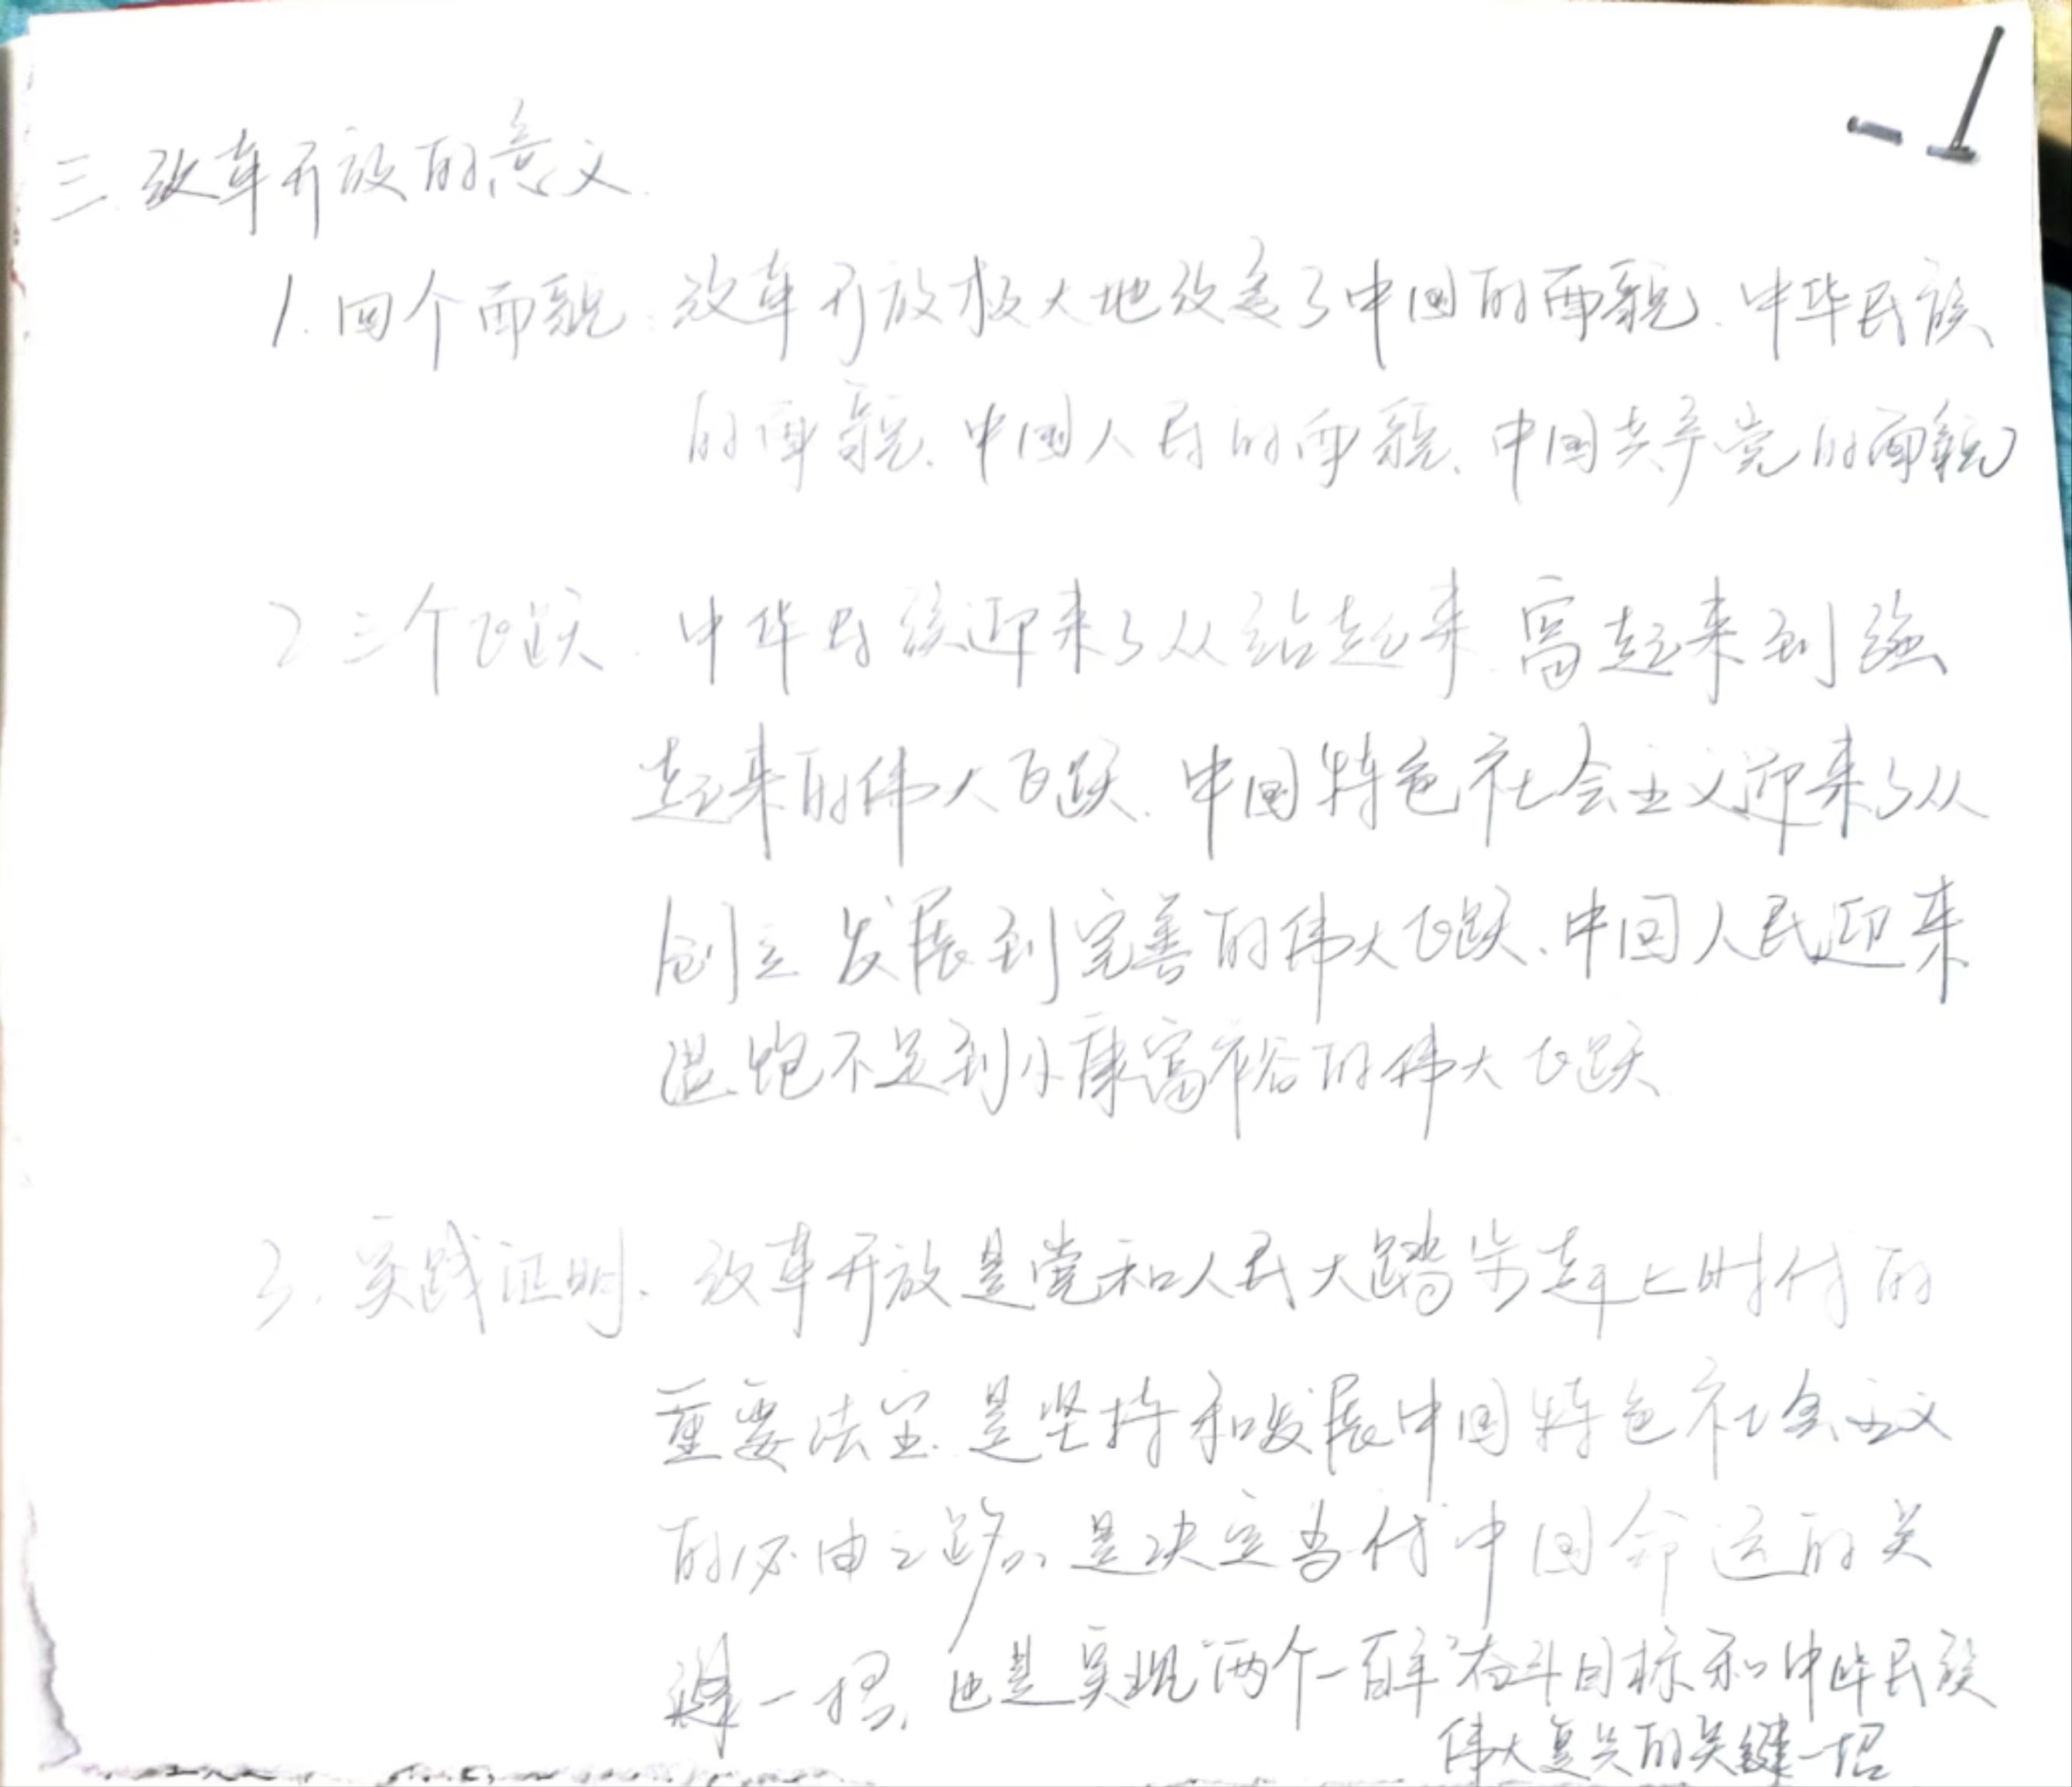 -1
三.改革开放的意义.
1.四个面貌:改革开放极大地改变了中国的面貌、中华民族
的面貌、中国人民的面貌、中国共产党的面貌
2 三个飞跃.中华民族迎来了从站起来、富起来到强
起来的伟大飞跃、中国特色社会主义迎来了从
创立 发展到完善的伟大飞跃、中国人民迎来
温饱不足到小康富裕的伟大飞跃
3.实践证明、改革开放是党和人民大踏步赶上时代的
重要法宝.是坚持和发展中国特色社会主义
的必由之路,是决定当代中国命运的关
键一招,也是实现"两个一百年"奋斗目标和中华民族
伟大复兴的关键一招